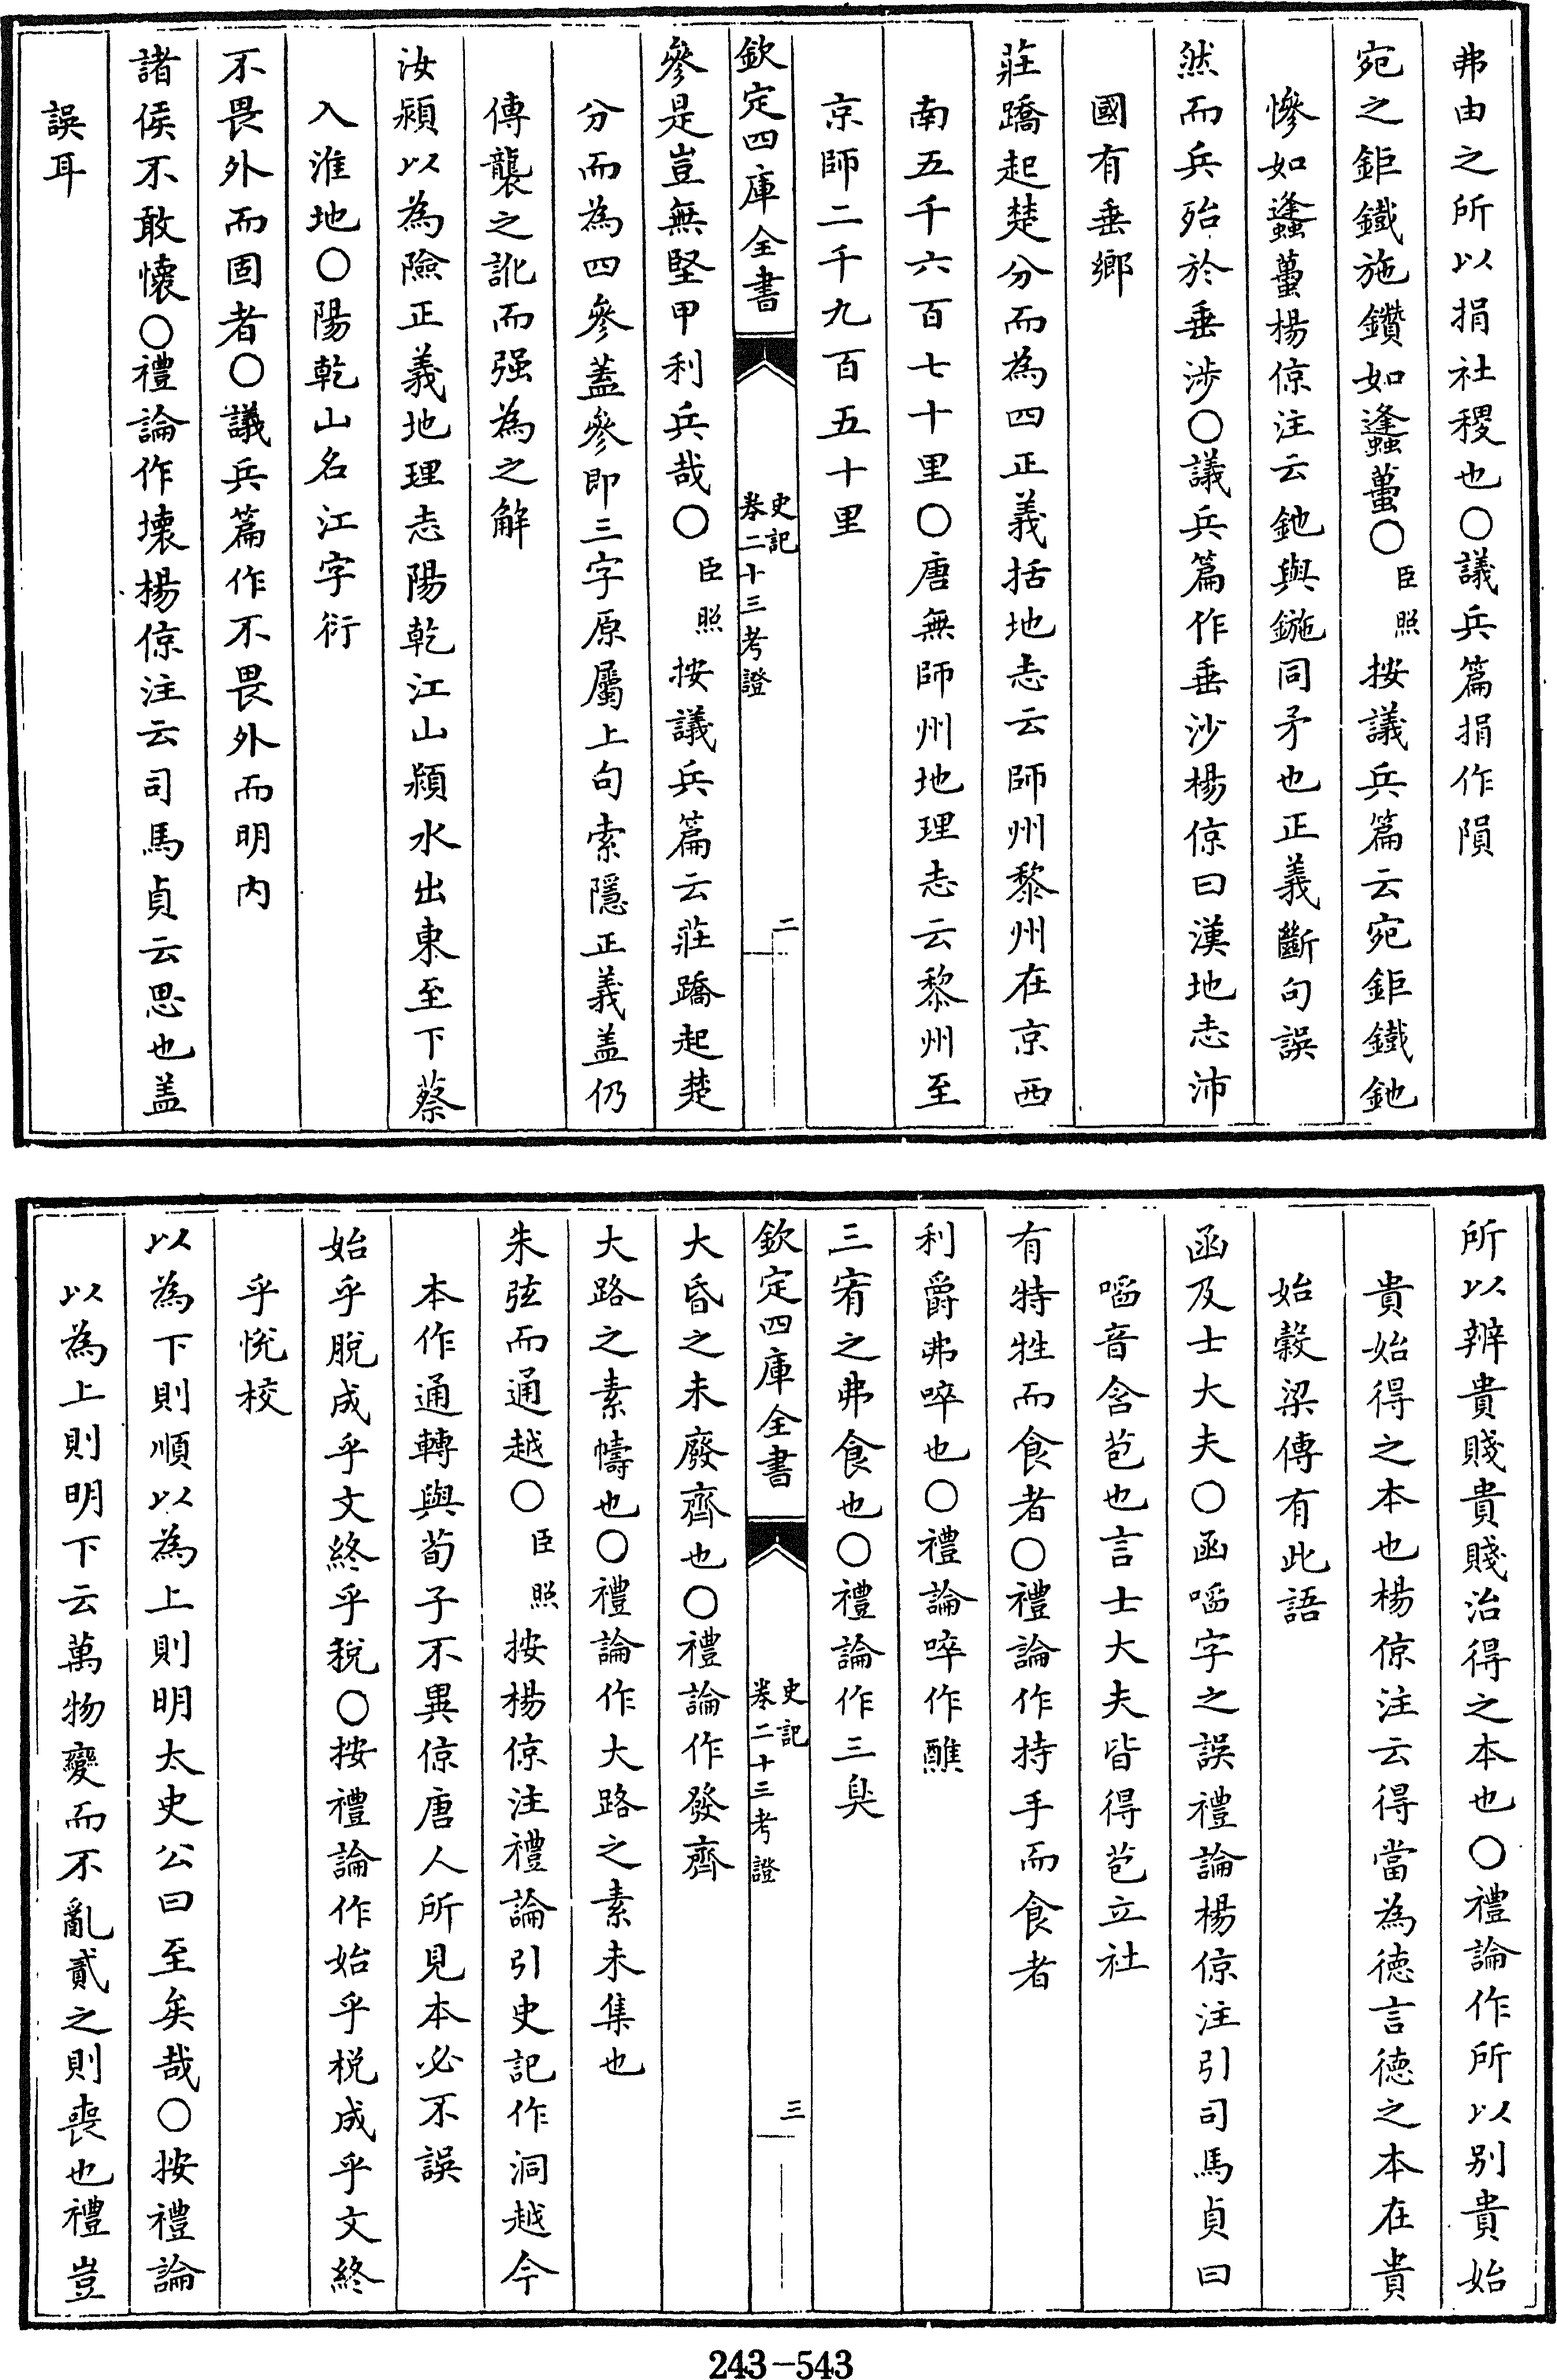 弗由之所以捐社稷也○議兵篇捐作隕
宛之鉅鐵施鑽如蠭蠆○臣照按議兵篇云宛鉅鐵釶
慘如蠭蠆楊倞注云釶與鍦同矛也正義斷句誤
然而兵殆於垂涉○議兵篇作垂沙楊倞曰漢地志沛
國有垂鄉
莊蹻起楚分而為四正義括地志云師州黎州在京西
南五千六百七十里○唐無師州地理志云黎州至
京師二千九百五十里
欽定四庫全書
史記
卷二十三考證
二
參是豈無堅甲利兵哉○臣照按議兵篇云莊蹻起楚
分而為四參蓋參即三字原屬上句索隱正義盖仍
傳襲之訛而强為之解
汝潁以為險正義地理志陽乾江山潁水出東至下蔡
入淮地○陽乾山名江字衍
不畏外而固者○議兵篇作不畏外而明内
諸侯不敢懐○禮論作壊楊倞注云司馬貞云思也盖
誤耳
所以辨貴賤貴賤治得之本也○禮論作所以别貴始
貴始得之本也楊倞注云得當為徳言徳之本在貴
始榖梁傳有此語
函及士大夫○函啗字之誤禮論楊倞注引司馬貞曰
啗音含苞也言士大夫皆得苞立社
有特牲而食者○禮論作持手而食者
利爵弗啐也○禮論啐作醮
三宥之弗食也○禮論作三臭
欽定四庫全書
史記
卷二十三考證
三
大昏之未廢齊也○禮論作發齊
大路之素幬也○禮論作大路之素未集也
朱弦而通越○臣照按楊倞注禮論引史記作洞越今
本作通轉與荀子不異倞唐人所見本必不誤
始乎脫成乎文終乎稅○按禮論作始乎梲成乎文終
乎悅校
以為下則順以為上則明太史公曰至矣哉○按禮論
以為上則明下云萬物變而不亂貳之則喪也禮豈
243-543